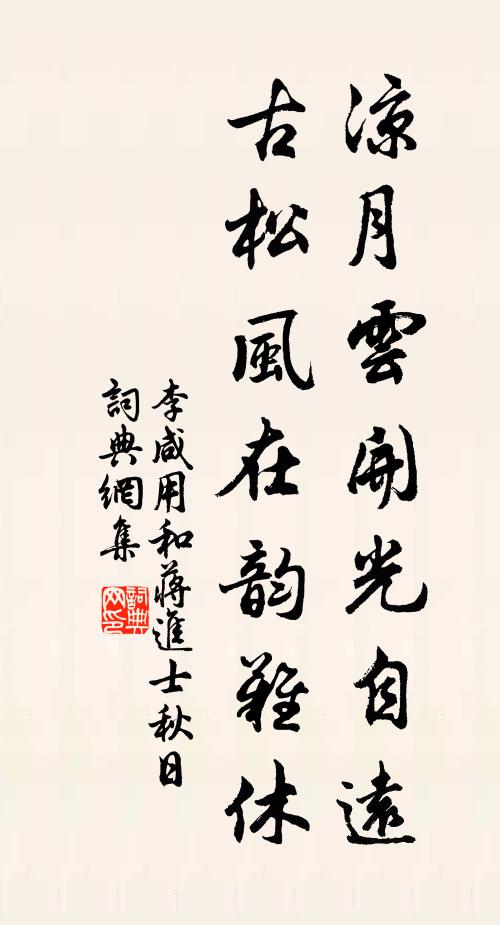 涼月雲開光自遠
古松風在韵難休
李咸用和蔣進士秋日
詞典網集
詞典
网印